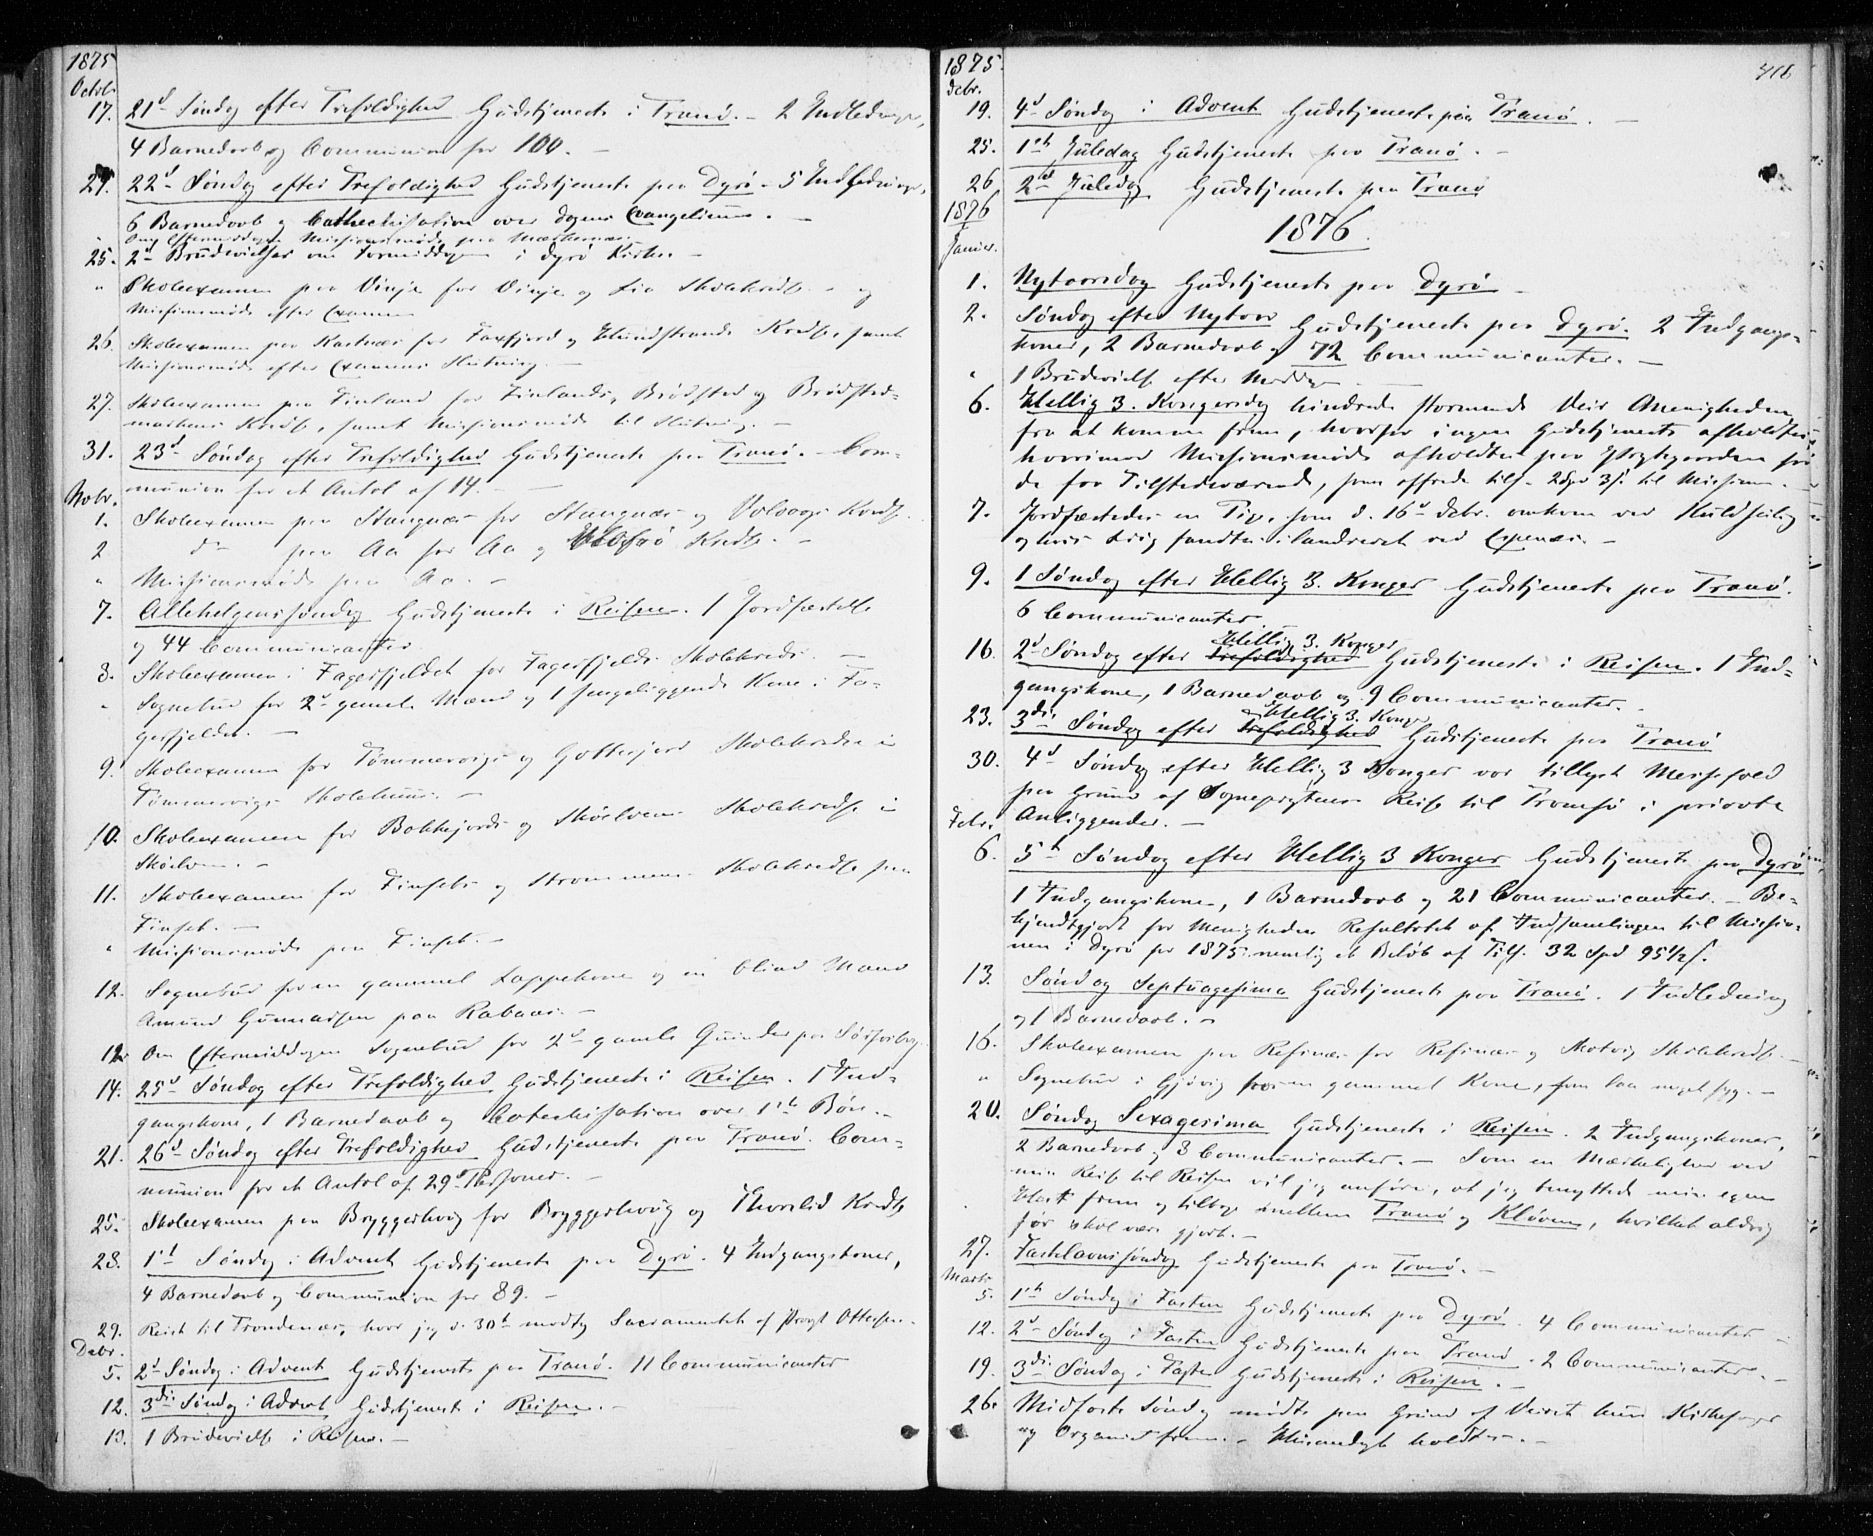 1875
Octob.
17. 21d Søndag efter Trefoldighed Gudstjeneste i Tranø. - 2 Indledninger,
4 Barnedaab og Communion for 100. -
24. 22d Søndag efter Trefoldighed Gudstjeneste paa Dyrø - 5 Indledninger,
6 Barnedaab og Cathechisation over dagens Evangelium. -
" Om Eftermiddagen Missionsmøde paa
25. 2d Brudevielser om Formiddagen i Dyrø Kirke. -
" Skoleexamen paa Vinje for Vinje og Lia Skolekreds - og
Missionsmøde efter Examen
26. Skoleexamen paa Kastnæs for Faxfjord og Kredse, samt
Missionsmøde efter Examens Slutning. -
27. Skoleexamen paa Finland for Finlands, Brødsted og Brødsted-
Kredse, samt Missionsmøde til Slutning. -
31. 23d Søndag efter Trefoldighed Gudstjeneste paa Tranø. - Com-
munion for et Antal af 14. -
Nobr.
1. Skoleexamen paa Stangnæs for Stangnæs og Kreds.
2 do paa Aa for Aa og Kreds. -
" Missionsmøde paa Aa. -
7. Allehelgenssøndag Gudstjeneste i Reisen. 1 Jordfæstelse
og 44 Communicanter.
8. Skoleexamen i Fagerfjeldet for Fagerfjelds Skolekreds. -
" Sognebud for 2de gamle Mænd og 1 sengeliggende Kone i Fa-
gerfjeldet. -
9. Skoleexamen for Tømmervigs og Gottesjord Skolekredse i
Tømmervigs Skolehuus. -
10. Skoleexamen for Bakkejords og Skøelvens Skolekredse i
Skøelven. -
11. Skoleexamen for Finsæts og Strømmens Skolekredse paa
Finsæt. -
" Missionsmøde paa Finsæt. -
12. Sognebud for en gammel Lappekone og en blind Mand
Amund Gunnarsen paa Rabaas. -
12. Om Eftermiddagen Sognebud for 2de gamle Quinder paa
14. 25d Søndag efter Trefoldighed Gudstjeneste i Reisen. 1 Ind-
gangskone, 1 Barnedaab og Catechisation over 1ste Bøn. -
21. 26d Søndag efter Trefoldighed Gudstjeneste paa Tranø. Com-
munion for et Antal af 29 Personer. -
25. Skoleexamen paa Bryggerhoug for Bryggerhoug og Kreds
28. 1st Søndag i Advent Gudstjeneste paa Dyrø. 4 Indgangskoner,
4 Barnedaab og Communion for 89. -
29. Reist til Trondenæs, hvor jeg d. 30te modtog Sacramentet af Provst Ottesen. -
Debr.
5. 2d Søndag i Advent Gudstjeneste paa Tranø. 11 Communicanter
12. 3die Søndag i Advent Gudstjeneste i Reisen. -
13. 1 Brudevielse i Reisen. -
1875.
Debr.
416
19. 4d Søndag i Advent Gudstjeneste paa Tranø. -
25. 1ste Juledag Gudstjeneste paa Tranø. -
26 2d Juledag Gudstjeneste paa Tranø
1876
1876.
Januar.
1. Nytaarsdag Gudstjeneste paa Dyrø -
2. Søndag efter Nytaar Gudstjeneste paa Dyrø. 2 Indgangs-
koner, 2 Barnedaab og 72 Communicanter. -
" 1 Brudevielse efter Middag -
6. Hellig 3. Kongersdag hindrede stormende Veir Menigheden
fra at komme frem, hvorfor ingen Gudstjeneste afholdtes,
hvorimod Missionsmøde afholdtes paa Præstegaarden for
de faa Tilstedeværende, som offrede tils. 2 Spd 3 s. til Missionen. -
7. Jordfæstedes en Pige, som d. 16d Debr. omkom ved Kuldseiling
og hvis Liig fandtes ilanddrevet ved -
9. 1 Søndag efter Hellig 3. Konger Gudstjeneste paa Tranø.
6 Communicanter.
16. 2d Søndag efter Trefoldighed Hellig 3. Konger Gudstjeneste i Reisen. 1 Ind-
gangskone, 1 Barnedaab og 9 Communicanter. -
23. 3die Søndag efter Trefoldighed Hellig 3. Konger Gudstjeneste paa Tranø
30. 4d Søndag efter Hellig 3 Konger var tillyst Messefald
paa Grund af Sognepræstens Reise til Tromsø i private
Anliggender. -
Febr.
6. 5te Søndag efter Hellig 3 Konger Gudstjeneste paa Dyrø
1 Indgangskone, 1 Barnedaab og 21 Communicanter. - Be-
kjendtgjort for Menigheden Resultatet af Indsamlingen til Missio-
nen i Dyrø for 1875, nemlig et Beløb af Tils. 32 Spd 95 1/2 s.
13. Søndag Septuagesima Gudstjeneste paa Tranø. 1 Indledning
og 1 Barnedaab. -
16. Skoleexamen paa Refsnæs for Refsnæs og Skatvig Skolekreds. -
" Sognebud i Gjøvig for en gammel Kone, som laa meget syg. -
20. Søndag Sexagesima Gudstjeneste i Reisen. 2 Indgangskoner,
2 Barnedaab og 3 Communicanter. - Som en Mærkelighed ved
min Reise til Reisen vil jeg anføre, at jeg benyttede min egen
Hest frem og tilbage imellem Tranø og Kløven, hvilket aldrig
før skal være gjort. -
27. Fastelavnssøndag Gudstjeneste paa Tranø. -
Marts
5. 1ste Søndag i Fasten Gudstjeneste paa Dyrø. 4 Communicanter
12. 2d Søndag i Fasten Gudstjeneste paa Tranø. 2 Communicanter. -
19. 3die Søndag i Faste Gudstjeneste i Reisen. -
26. Midfaste Søndag mødte paa Grund af Veiret kun Kirkesanger
og Organist frem. - Huusandagt holdtes. -